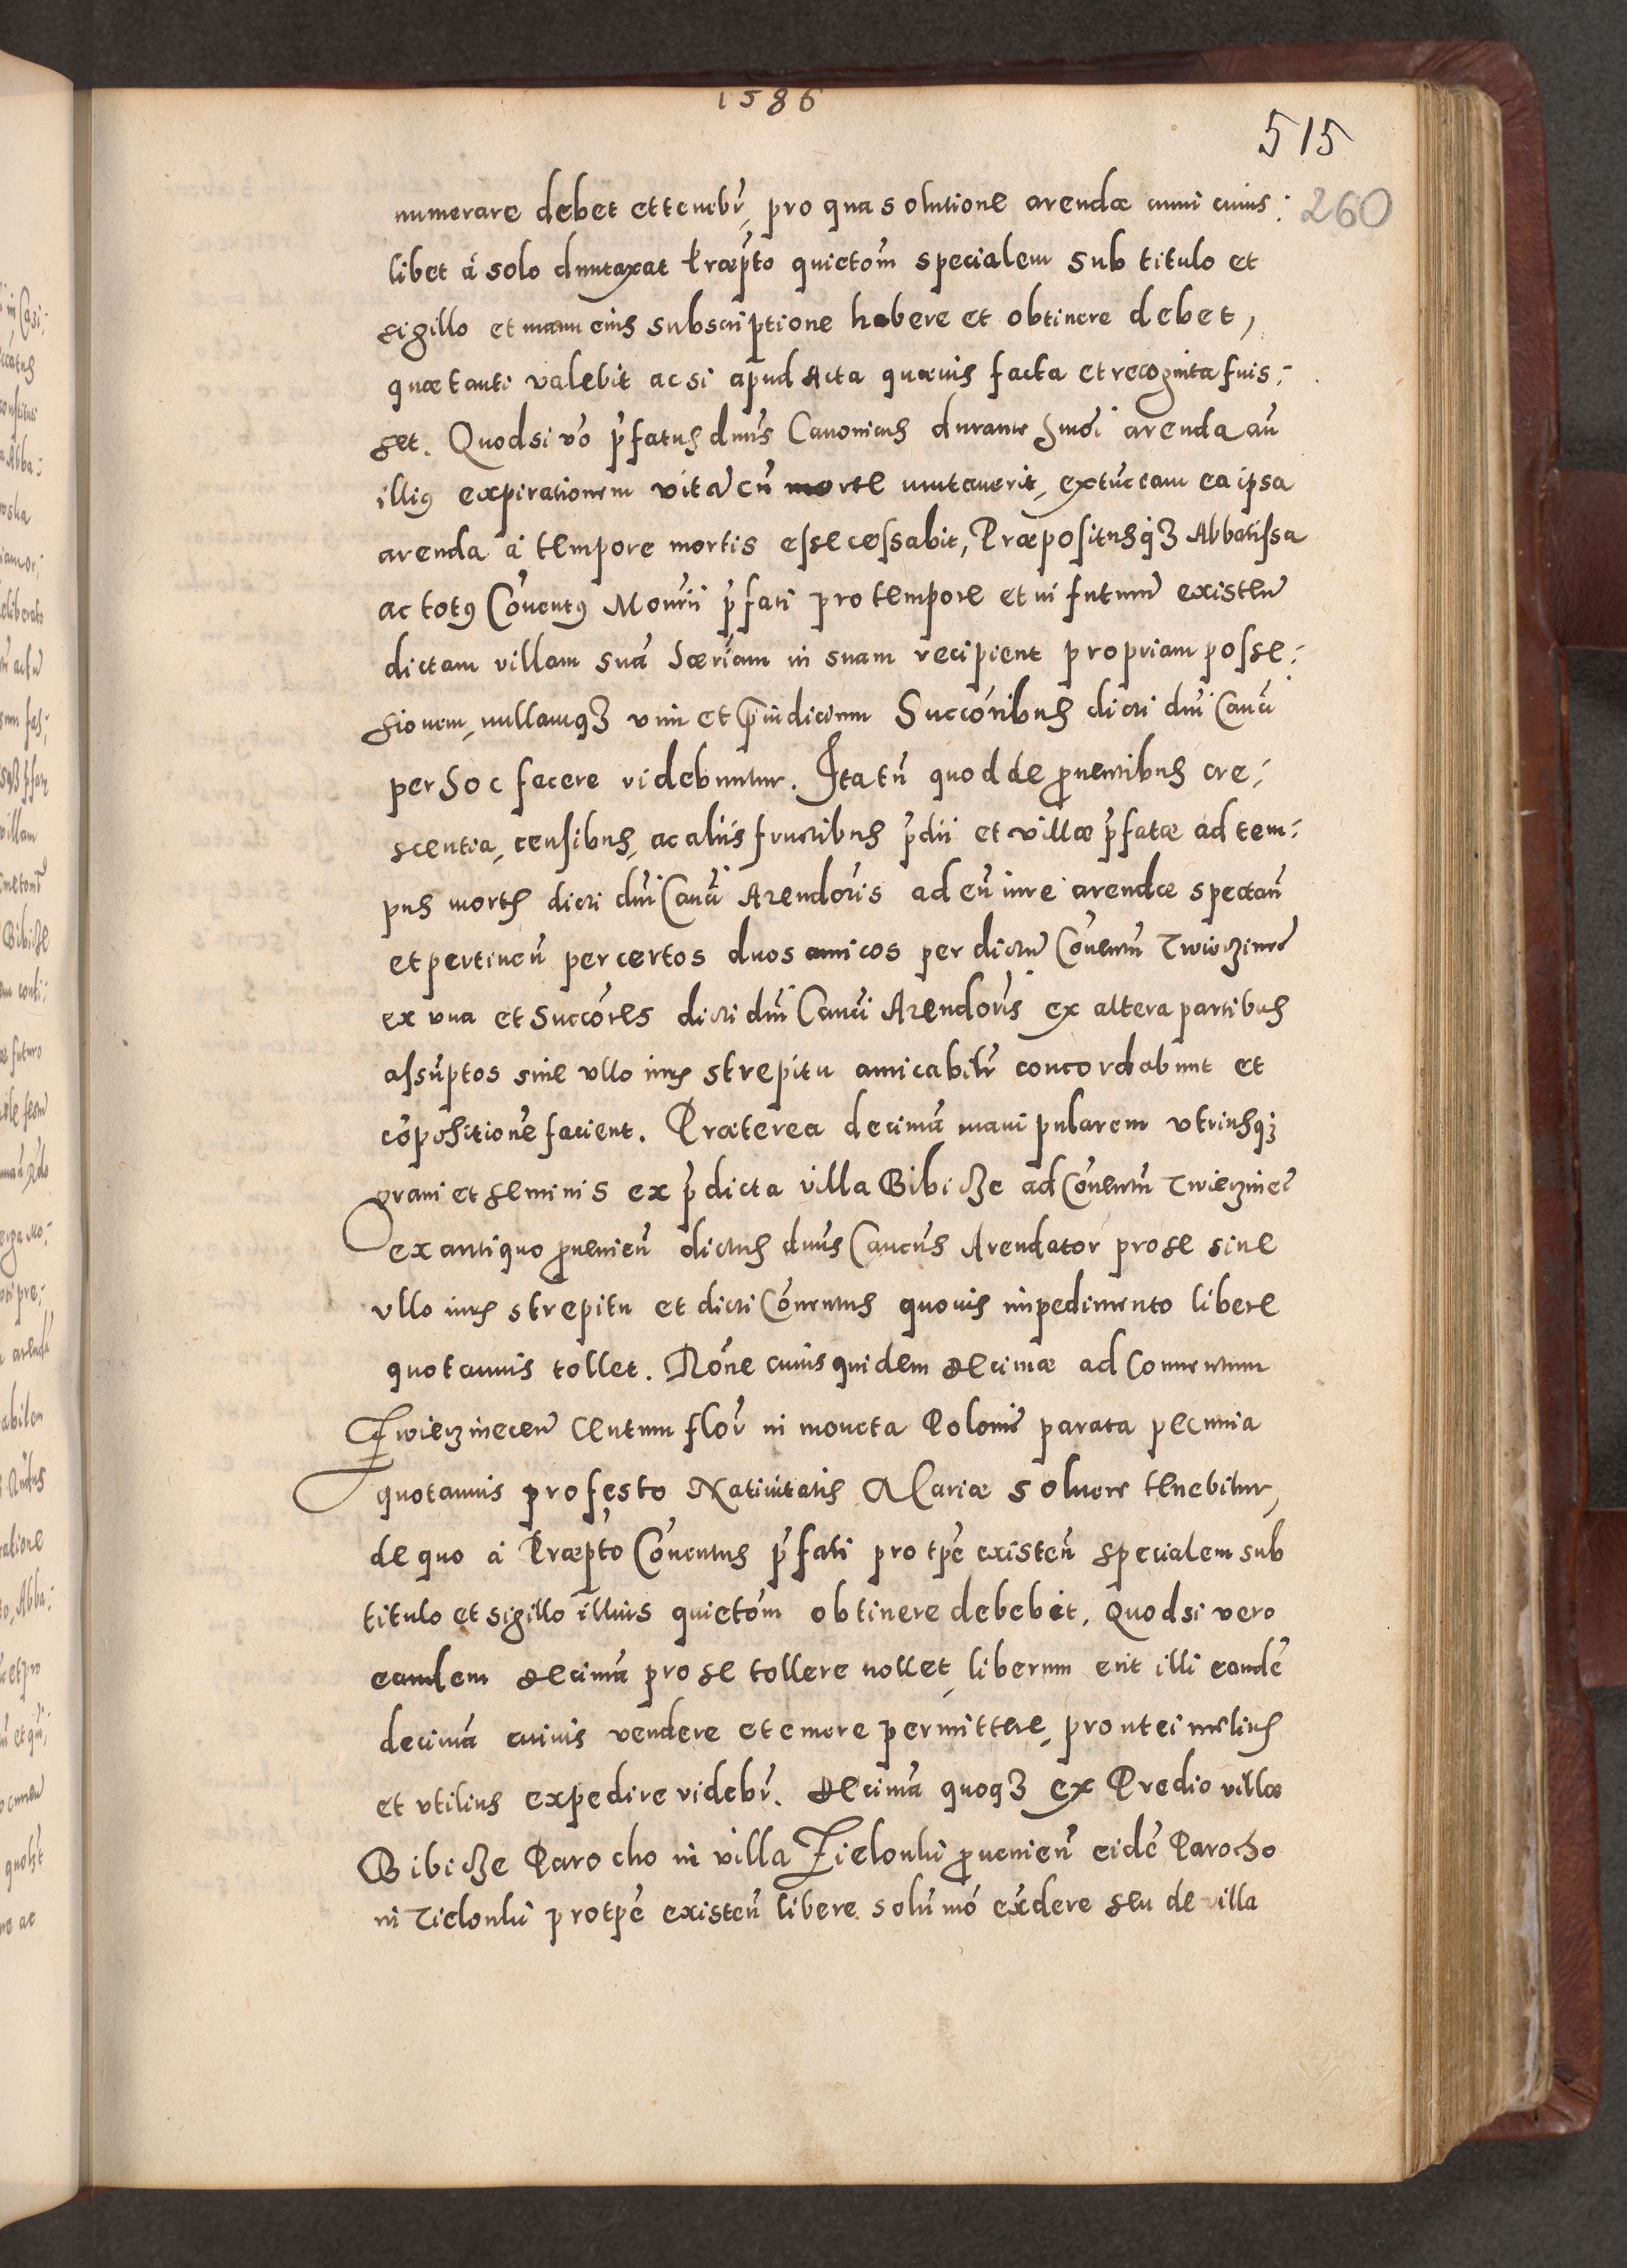 1586
515
numerare debet et tenebr̃, pro qua solutione arendæ anni cuius:
260
libet à solo duntaxat Præp̃to quietom̃ specialem sub titulo et
sigillo et manu eius subscriptione habere et obtinere debet,
quæ tanti valebit ac si apud Acta quævis facta et recognita fuis:
set. Quodsi vo p̃fatus dnus Canonicus durante hmoi arenda añ
illiꝯ expirationem vitã cũ morte mutauerit, extũc eam ea ipsa
arenda à tempore mortis esse cessabit, Præpositusqꝫ Abbatissa
ac totꝯ Conventꝯ Monrii p̃fati pro tempore et in futurũ existen̄
dictam villam suã hæriam in suam recipient propriam posse:
sionem, nullamqꝫ vim et p̃iudicium Succõribus dicti dni Canci
per hoc facere videbuntur. Ita tñ quod de ꝓuentibus cre:
scentia, censibus, ac aliis fructibus p̃dii et villæ p̃fatæ ad tem:
pus mortis dicti dni Canci Arendõris ad eũ iure arendæ spectañ
et pertineñ per certos duos amicos per dictũ Conentũ Zwierzineñ
ex una et Succõres dicti dni Canci Arendõris ex altera partibus
assũptos sine ullo iuris strepitu amicabilr̃ concordabunt et
cõpositionẽ facient. Præterea decimã manipularem utriusqꝫ
grani et seminis ex p̃dicta villa Bibicze ad Conentũ Zwierzineñ
ex antiquo ꝓuenieñ dictus dnus Cancus Arendator pro se sine
ullo iuris strepitu et dicti Conuentus quouis impedimento libere
quotannis tollet. Rõne cuius quidem decimæ ad Conuentum
Zwierzinecen̄ centum flor̃ in moneta Poloniẽ parata pecunia
quotannis pro festo Natiuitatis Mariæ soluere tenebitur,
de quo à Præp̃to Conuentus p̃fati pro tpẽ existeñ specialem sub
titulo et sigillo illius quietom̃ obtinere debebit. Quodsi vero
eandem decimã pro se tollere nollet, liberum erit illi eandẽ
decimã cuiuis vendere et emere permittere, prout ei melius
et utilius expedire videbr̃. Decimã quoqꝫ ex Predio villæ
Bibicze Parocho in villa Zielonki ꝓuenieñ eidẽ Parocho
in Zielonki pro tpẽ existeñ libere solummõ cẽdere seu de villa